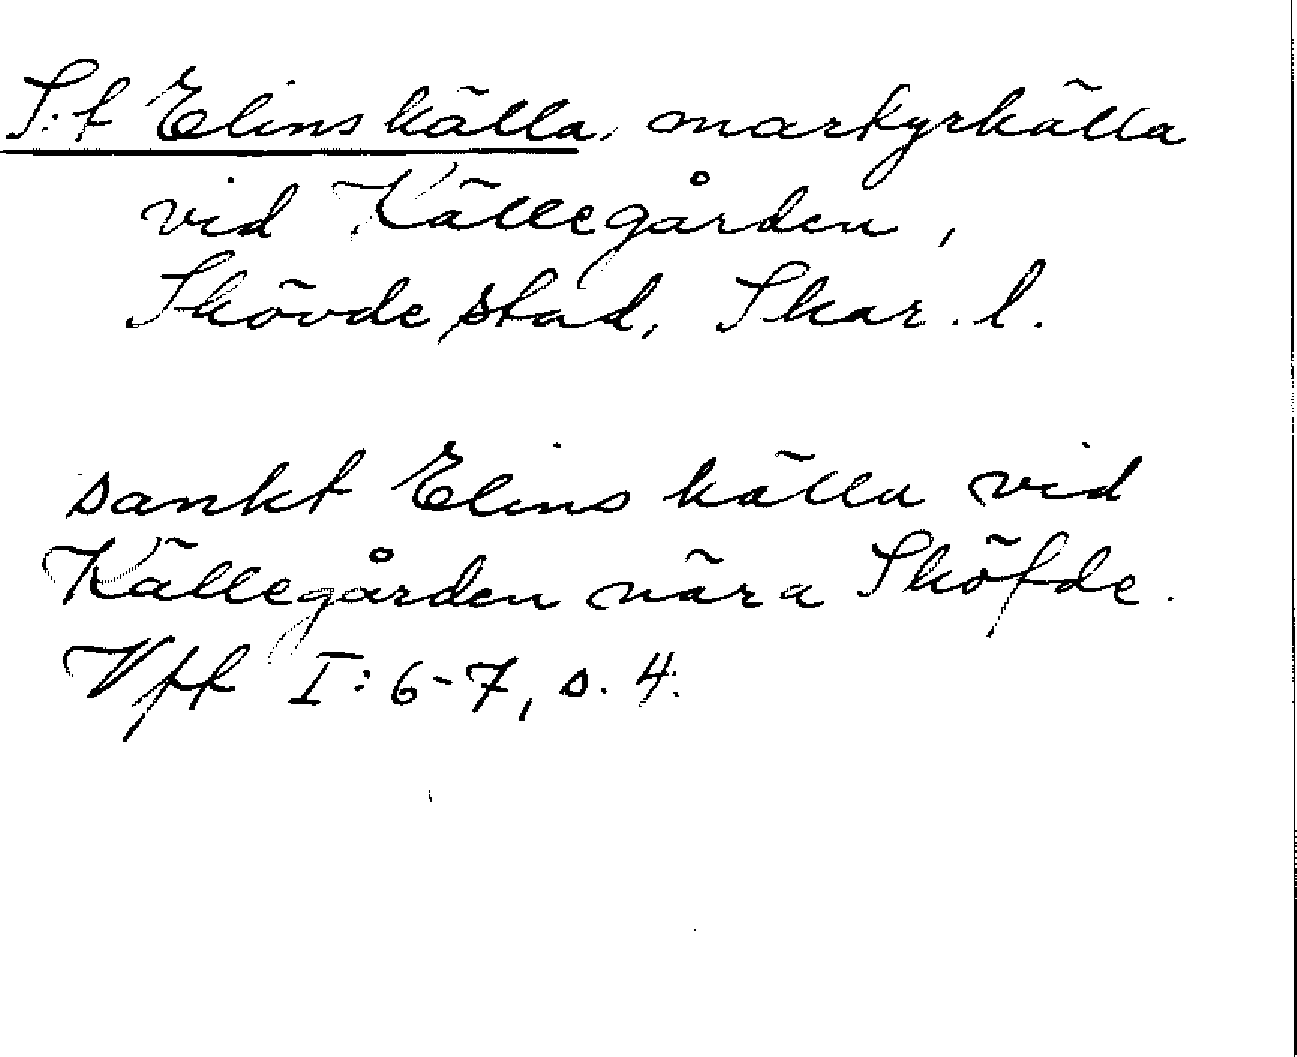 S:t Elins källa, martyrkälla
vid Källegården,
Skövde stad, Skar. l.
sankt Elins källa vid
Källegården nära Sköfde.
Vff I: 6-7, s. 4.